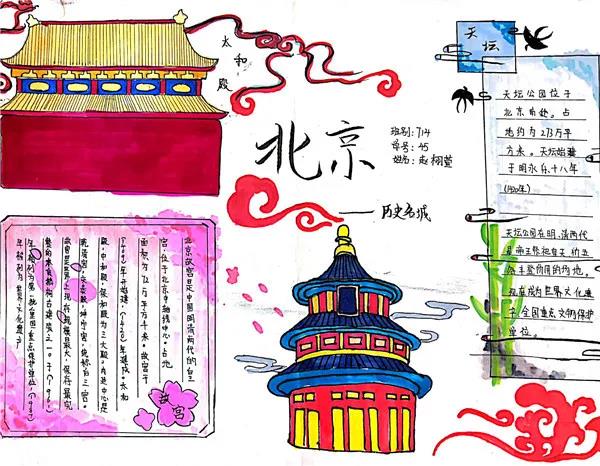 太和殿
北京
班别:714
学号:45
姓名:赵栩萱
——历史名城
天坛
天坛公园位于
北京南部。占
地约为273万平
方米。天坛始建
于明永乐十八年
(1420年)
天坛公园在明、清两代
是帝王祭祀皇天、祈五
谷丰登的场地,
现在成为世界文化遗
产,全国重点文物保护
单位。
北京故宫是中国明清两代的皇
宫,位于北京中轴线中心。占地
面积为72万平方千米。故宫于
(1406)年开始建,(1420)年建成。太和
殿、中和殿、保和殿为三大殿。内廷中心是
乾清宫、交泰殿、坤宁宫,统称后三宫。
故宫是世界上现存规模最大、保存最完
整的木质结构古建筑之一。于(1961)
年被列为第一批全国重点保护单位,(1987)
年被列为世界文化遗产
故宫